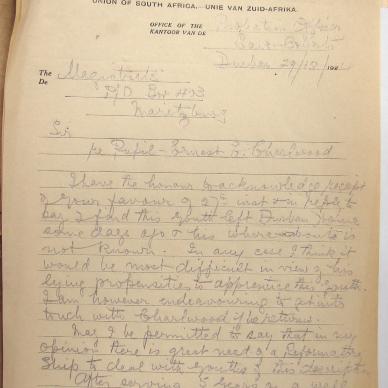 UNION OF SOUTH AFRICA.—UNIE VAN ZUID-AFRIKA.
OFFICE OF THE
KANTOOR VAN DE
Probation Officer
Durban 29/12/192
The Magistrate
De
P/O Box 493
Maritzburg
Sir
re Pupil - Ernest E. Charlwood
I have the honour to acknowledge receipt
of your favour of 27th inst & in reply to
say I find this youth left Durban
some days ago & his whereabouts is
not known. In any case I think it
would be most difficult in view of his
lying propensities to apprentice this youth.
I am however endeavouring to get into
touch with Charlwood
May I be permitted to say that in my
opinion there is great need of a Reformatory
Ship to deal with youths of this description
After serving